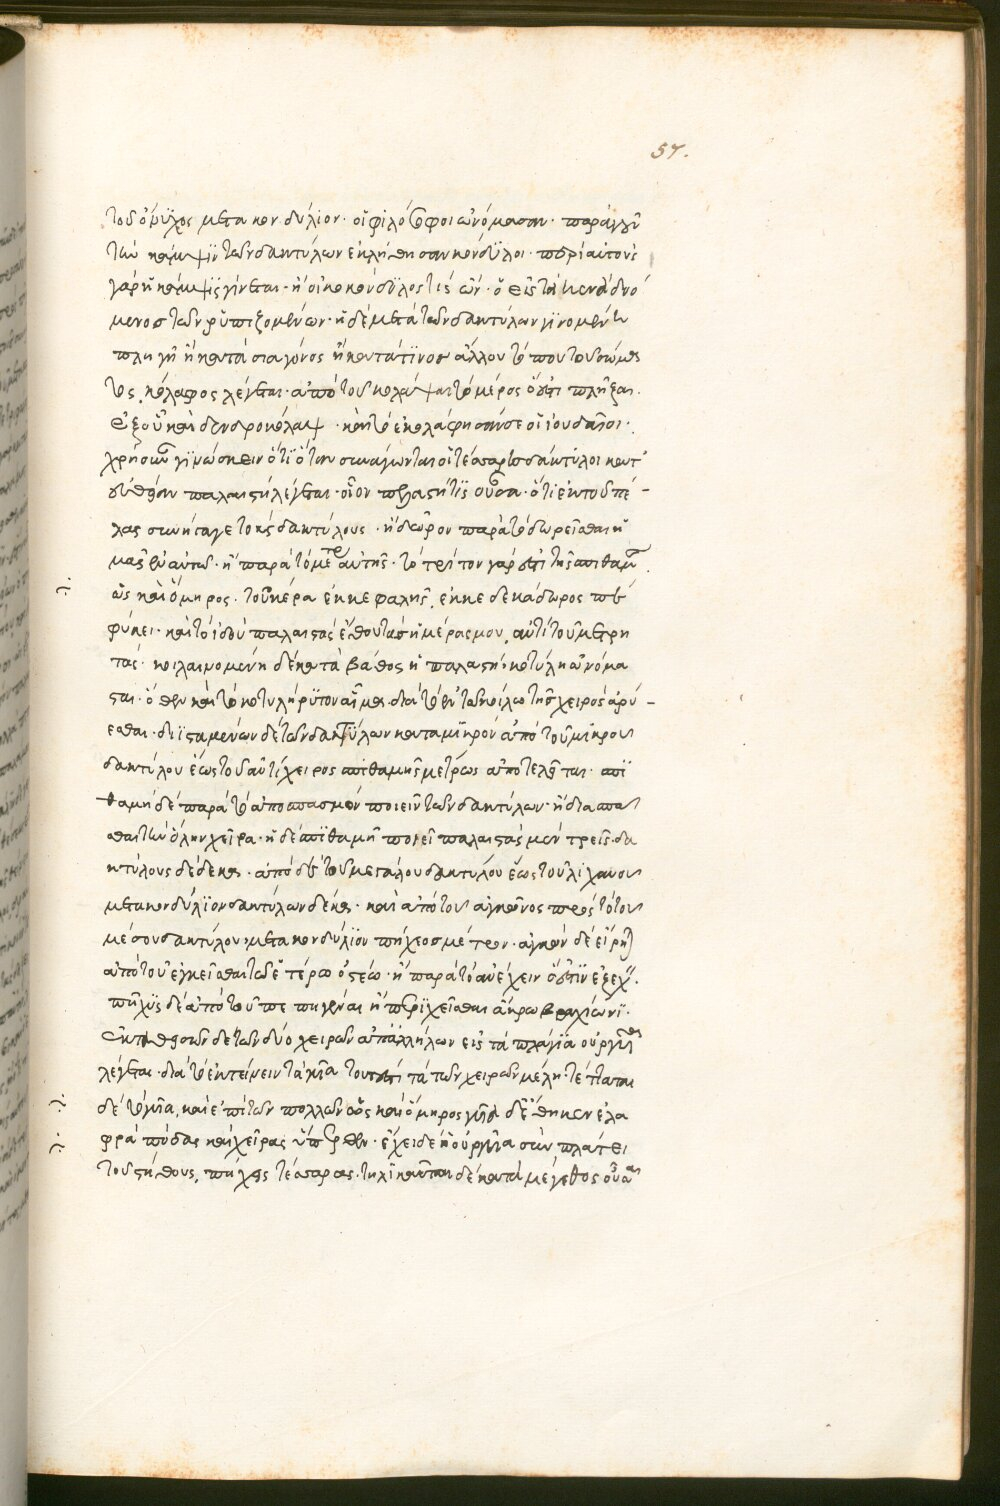 57.
τοδόνυχος μετακονδύλιον· οἱ φιλόσοφοι ὠνόμασαν· παρὰ γὰρ
τὴν κάμψιν τῶν δακτύλων ἐκλήθησαν κονδύλοι· περὶ αὐτοὺς
γὰρ ἡ κάμψις γίνεται· ἢ οἱ κονκόνδυλος τίς ὤν· ὁ εἰς τὰ κενὰ δυό
μενος τῶν ῥαπιζομένων· ἡ δὲ μετὰ τῶν δακτύλων γινομένη
πληγὴ ἢ κατὰ σιαγόνος ἢ κατά τινος ἄλλου τόπου τοῦ σώμα
τος, κόλαφος λέγεται· ἀπὸ τοῦ κολάψαι τὸ μέρος ὅ ἐστι πλῆξαι·
ἐξ οὗ καὶ δενδροκόλαψ· καὶ τὸ ἐκολάφησάν σε οἱ ἰουδαῖοι·
χρὴ οὖν γινώσκειν ὅτι ὅταν συνάγωνται οἱ τέσσαρες δάκτυλοι κατ
εὐθεῖαν παλαιστὴ λέγεται· οἷον πελαστή τις οὖσα· ὅτι ἐν τοῦ πέ-
λας συνήγαγε τοὺς δακτύλους· ἢ δῶρον παρὰ τὸ δωρεῖσθαι ἡ
μᾶς ἐν αὐτῷ· ἢ παρὰ τὸ μέτρον αὐτῆς· τὸ τρίτον γάρ ἐστι τῆς σπιθαμῆς
ὡς καὶ ὅμηρος· τοῦ κέρα ἐκ κεφαλῆς, ἑκκαιδεκάδωρος πε
φύκει· καὶ τὸ ἰδοὺ παλαιστὰς ἔθου τὰς ἡμέρας μου, ἀντὶ τοῦ μετρη
τάς· κοιλαινομένη δὲ κατὰ βάθος ἡ παλαστὴ κοτύλη ὠνόμα
σται· ὅθεν καὶ τὸ κοτυλήρυτον αἷμα διὰ τὸ ἐν τῷ κοίλῳ τῆς χειρὸς ἀρύ-
εσθαι· διϊσταμένων δὲ τῶν δακτύλων κατὰ μικρὸν ἀπὸ τοῦ μικροῦ
δακτύλου ἕως τοῦ ἀντίχειρος σπιθαμῆς μετρῶς ἀποτελεῖται· σπι
θαμὴ δὲ παρὰ τὸ ἀποσπασμὸν ποιεῖν τῶν δακτύλων· ἢ διασπα
σθαι τὴν ὅλην χεῖρα· ἡ δὲ σπιθαμὴ ποιεῖ παλαιστὰς μὲν τρεῖς δα
κτύλους δὲ δέκα· ἀπὸ δὲ τοῦ μεγάλου δακτύλου ἕως τοῦ λιχανοῦ
μετακονδύλιον δακτύλων δέκα· καὶ ἀπὸ τοῦ ἀγκῶνος πρὸς τὸ τοῦ
μέσου δακτύλου μετακονδύλιον πήχεος μέτρον· ἀγκὼν δὲ εἴρηται
ἀπὸ τοῦ ἐγκεῖσθαι τῷ ἑτέρῳ ὀστέῳ· ἢ παρὰ τὸ ἀνέχειν ὅ ἐστιν ἐξέχειν·
πῆχυς δὲ ἀπὸ τοῦ πεπηγέναι ἢ περιχεῖσθαι ἄκρῳ βραχίωνι·
ἐκταθεισῶν δὲ τῶν δύο χειρῶν ἀπ' ἀλλήλων εἰς τὰ πλάγια οὐργυῖα
λέγεται· διὰ τὸ ἐντείνειν τὰ γυῖα τουτέστι τὰ τῶν χειρῶν μέλη· τέτακται
δὲ τὸ γυῖα, καὶ ἐπὶ τῶν πολλῶν ὡς καὶ ὅμηρος γυῖα δ' ἔθηκεν ἐλα
φρὰ πόδας καὶ χεῖρας ὕπερθεν· ἔχει δὲ ἡ οὐργυῖα σὺν πλάτει
τοῦ στήθους, πήχεις τέσσαρας· τηλικαῦται δὲ κατὰ μέγεθος οὖσαι